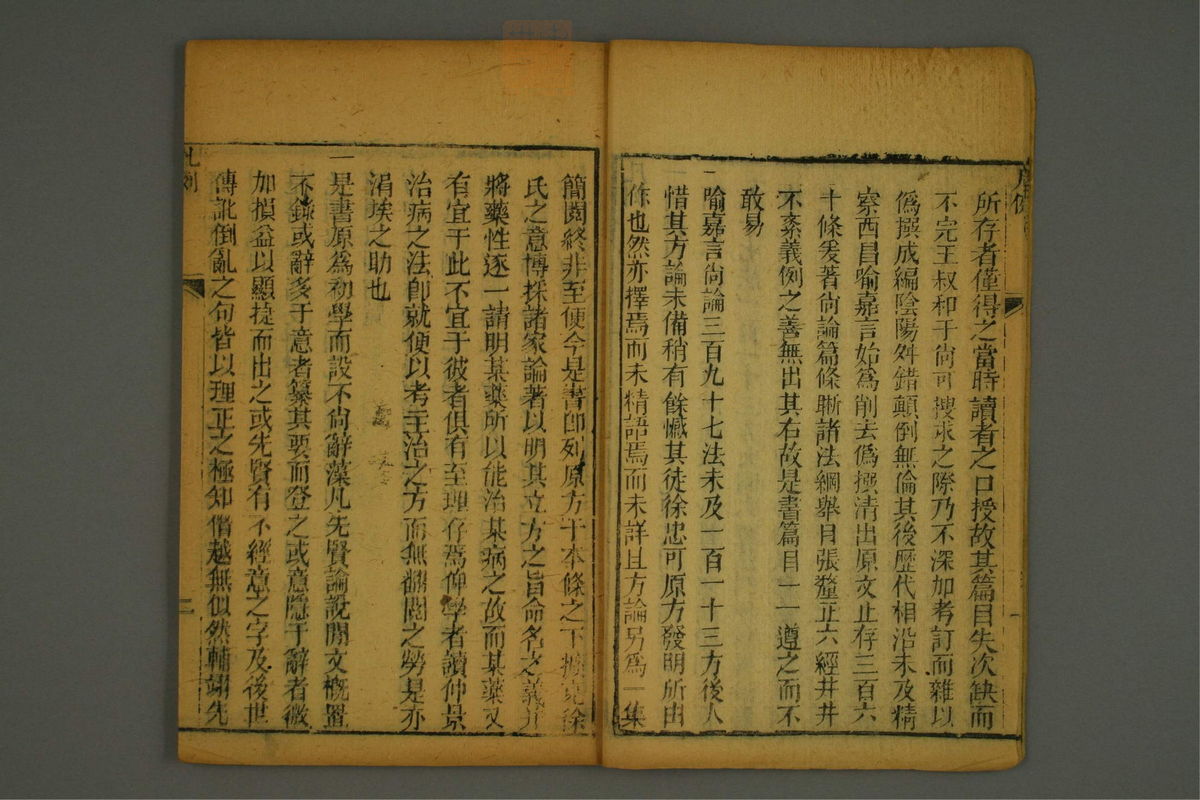 所存者僅得之當時讀者之口授故其篇目失次缺而
不完王叔和于尙可搜求之際乃不深加考訂而雜以
僞撰成編陰陽舛錯顚倒無倫其後歷代相沿未及精
察西昌喻嘉言始爲削去僞撰清出原文止存三百六
十條爰著尙論篇條晣諸法綱舉目張釐正六經井井
不紊義例之善無出其右故是書篇目一一遵之而不
敢易
一喻嘉言尙論三百九十七法未及一百一十三方後人
惜其方論未備稍有餘憾其徒徐忠可原方發明所由
作也然亦擇焉而未精語焉而未詳且方論另爲一集
簡閱終非至便今是書卽列原方于本條之下擬徐
氏之意博採諸家論著以明其立方之旨命名之義
將藥性逐一請明某藥所以能治某病之故而某藥又
有宜于此不宜于彼者俱有至理存焉俾學者讀仲景
治病之法卽就便以考主治之方而無翻閱之勞是亦
涓埃之助也
一是書原爲初學而設不尙辭藻凡先賢論說閒文槪置
不錄或辭多于意者纂其要而登之或意隱于辭者微
加損益以顯㨗而出之或先賢有不經意之字及後世
傳訛倒亂之句皆以理正之極知僭越無似然輔翊先
凡例
二